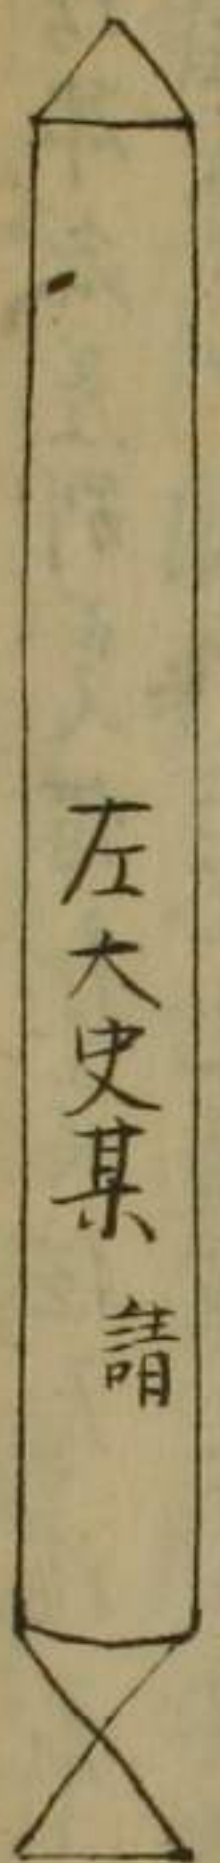 左大史某 請